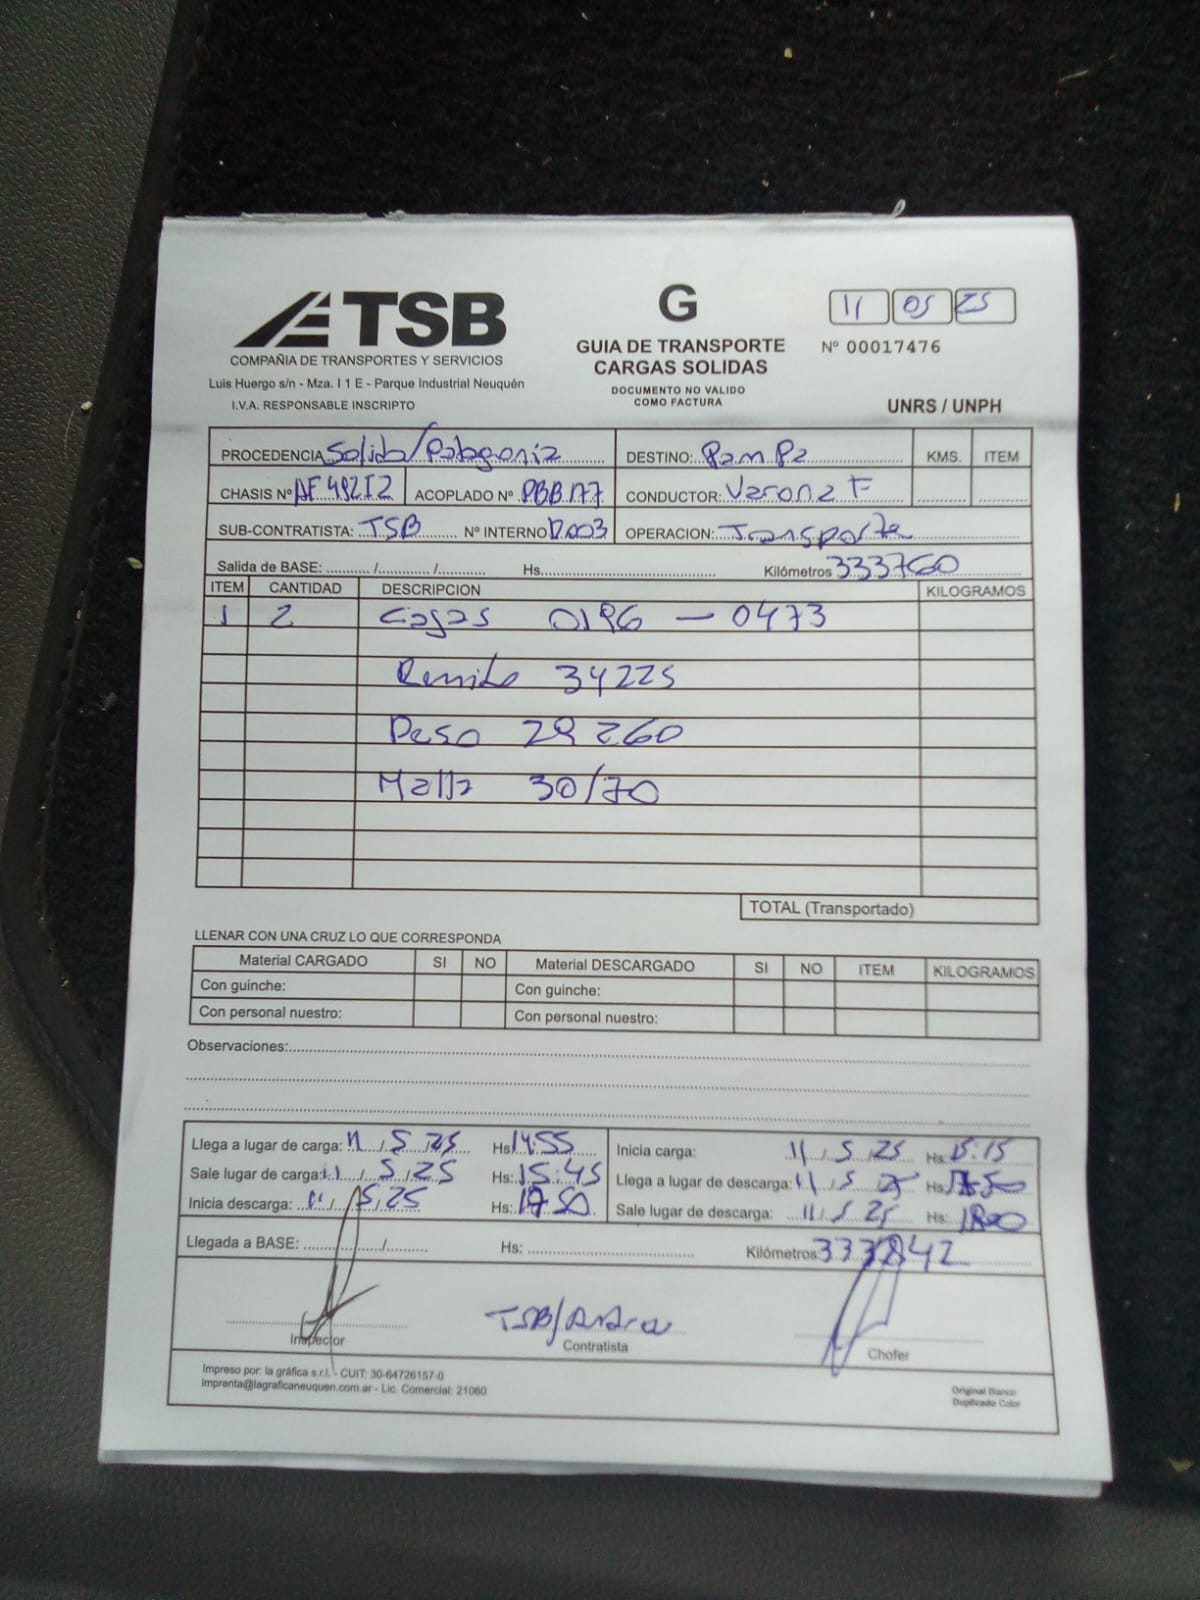 TSB
COMPAÑIA DE TRANSPORTES Y SERVICIOS
Luis Huergo s/n - Mza. I 1 E - Parque Industrial Neuquén
I.V.A. RESPONSABLE INSCRIPTO
G
GUIA DE TRANSPORTE
CARGAS SOLIDAS
DOCUMENTO NO VALIDO
COMO FACTURA
11 05 25
Nº 00017476
UNRS / UNPH
PROCEDENCIA Solida/Patagonia DESTINO: Pampa KMS. ITEM
CHASIS Nº AF492IZ ACOPLADO Nº CONDUCTOR: Varona F
SUB-CONTRATISTA: TSB Nº INTERNO OPERACION: Transporte
Salida de BASE: ........../........../.......... Hs. Kilómetros 333760
ITEM CANTIDAD DESCRIPCION KILOGRAMOS
1 2 Cajas 0196 - 0473
Remito 34225
Peso 29260
Malla 30/70
TOTAL (Transportado)
LLENAR CON UNA CRUZ LO QUE CORRESPONDA
Material CARGADO SI NO Material DESCARGADO SI NO ITEM KILOGRAMOS
Con guinche: Con guinche:
Con personal nuestro: Con personal nuestro:
Observaciones:
Llega a lugar de carga: 11/5/25 Hs 14:55 Inicia carga: 11/5/25 Hs. 15:15
Sale lugar de carga: 11/5/25 Hs: 15:45 Llega a lugar de descarga: 11/5/25 Hs. 1750
Inicia descarga: 11/5/25 Hs: 1750 Sale lugar de descarga: 11/5/25 Hs: 1800
Llegada a BASE: ........../.......... Hs: Kilómetros 333842
Inspector
TSB/
Contratista
Chofer
Impreso por: la gráfica s.r.l. - CUIT: 30-64726157-0
imprenta@lagraficaneuquen.com.ar - Lic. Comercial: 21060
Original Blanco
Duplicado Color